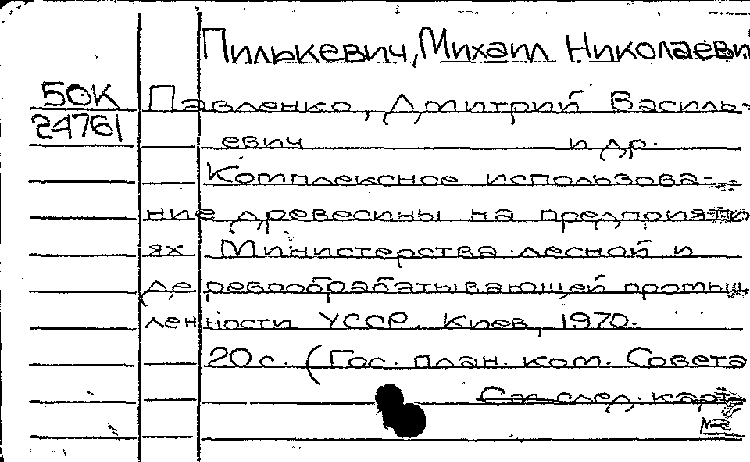 Пилькевич, Михаил Николаеви
50К Павленко, Дмитрий Василь-
24761
евич и др.
Комплексное использова-
ние древесины на предприяти-
ях Министерства лесной и
деревообрабатывающей промыш
ленности УССР. Киев, 1970.
20 с. (Гос. план. ком. Совета
См. след. карт